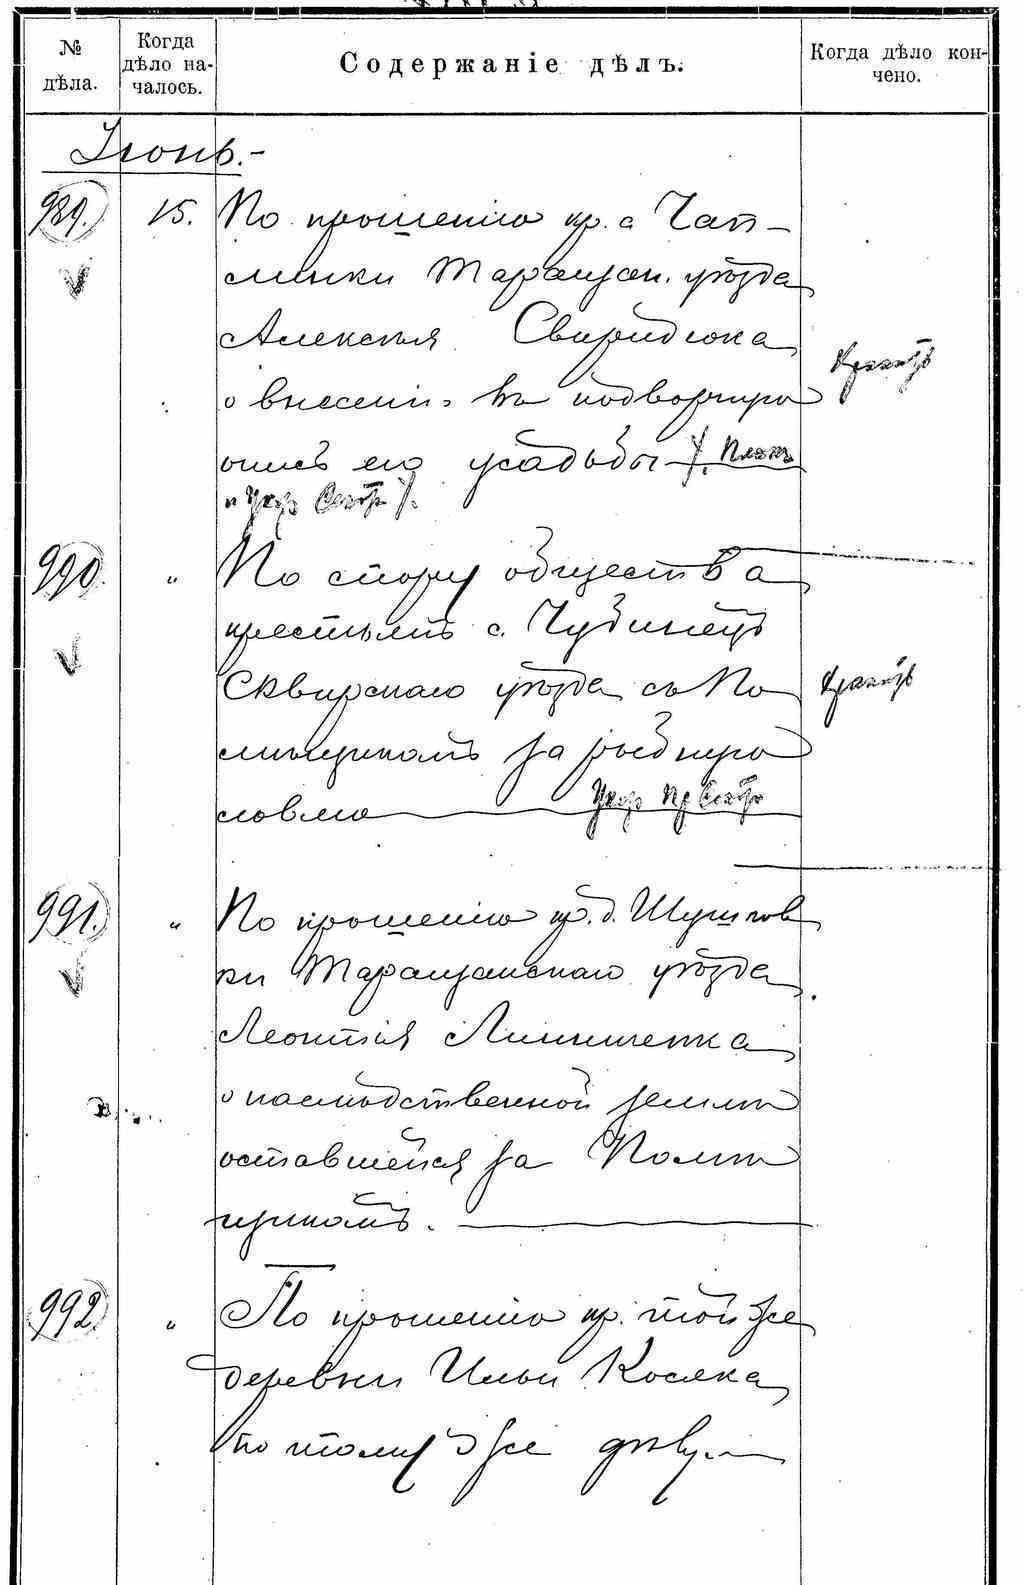 № дѣла.
Когда дѣло на-
чалось.
Содержаніе дѣлъ.
Когда дѣло кон-
чено.
Іюнь.-
989. 15. По прошенію кр. с Чап-
линки Таращан. уѣзда
Алексѣя Свиридюка
о внесеніи въ подворную
опись его усадьбы
990. " По спору общества
крестьянъ с. Чубинецъ
Сквирскаго уѣзда съ По
мѣщикомъ за рыбную
ловлю
991. " По прошенію кр. д. Шушков
ки Таращанскаго уѣзда
Леонтія Линниченка
о наслѣдственной землѣ
оставшейся за Помѣ
щикомъ.
992. " По прошенію кр. той же
деревни Ильи Косяка
по тому же дѣлу.-